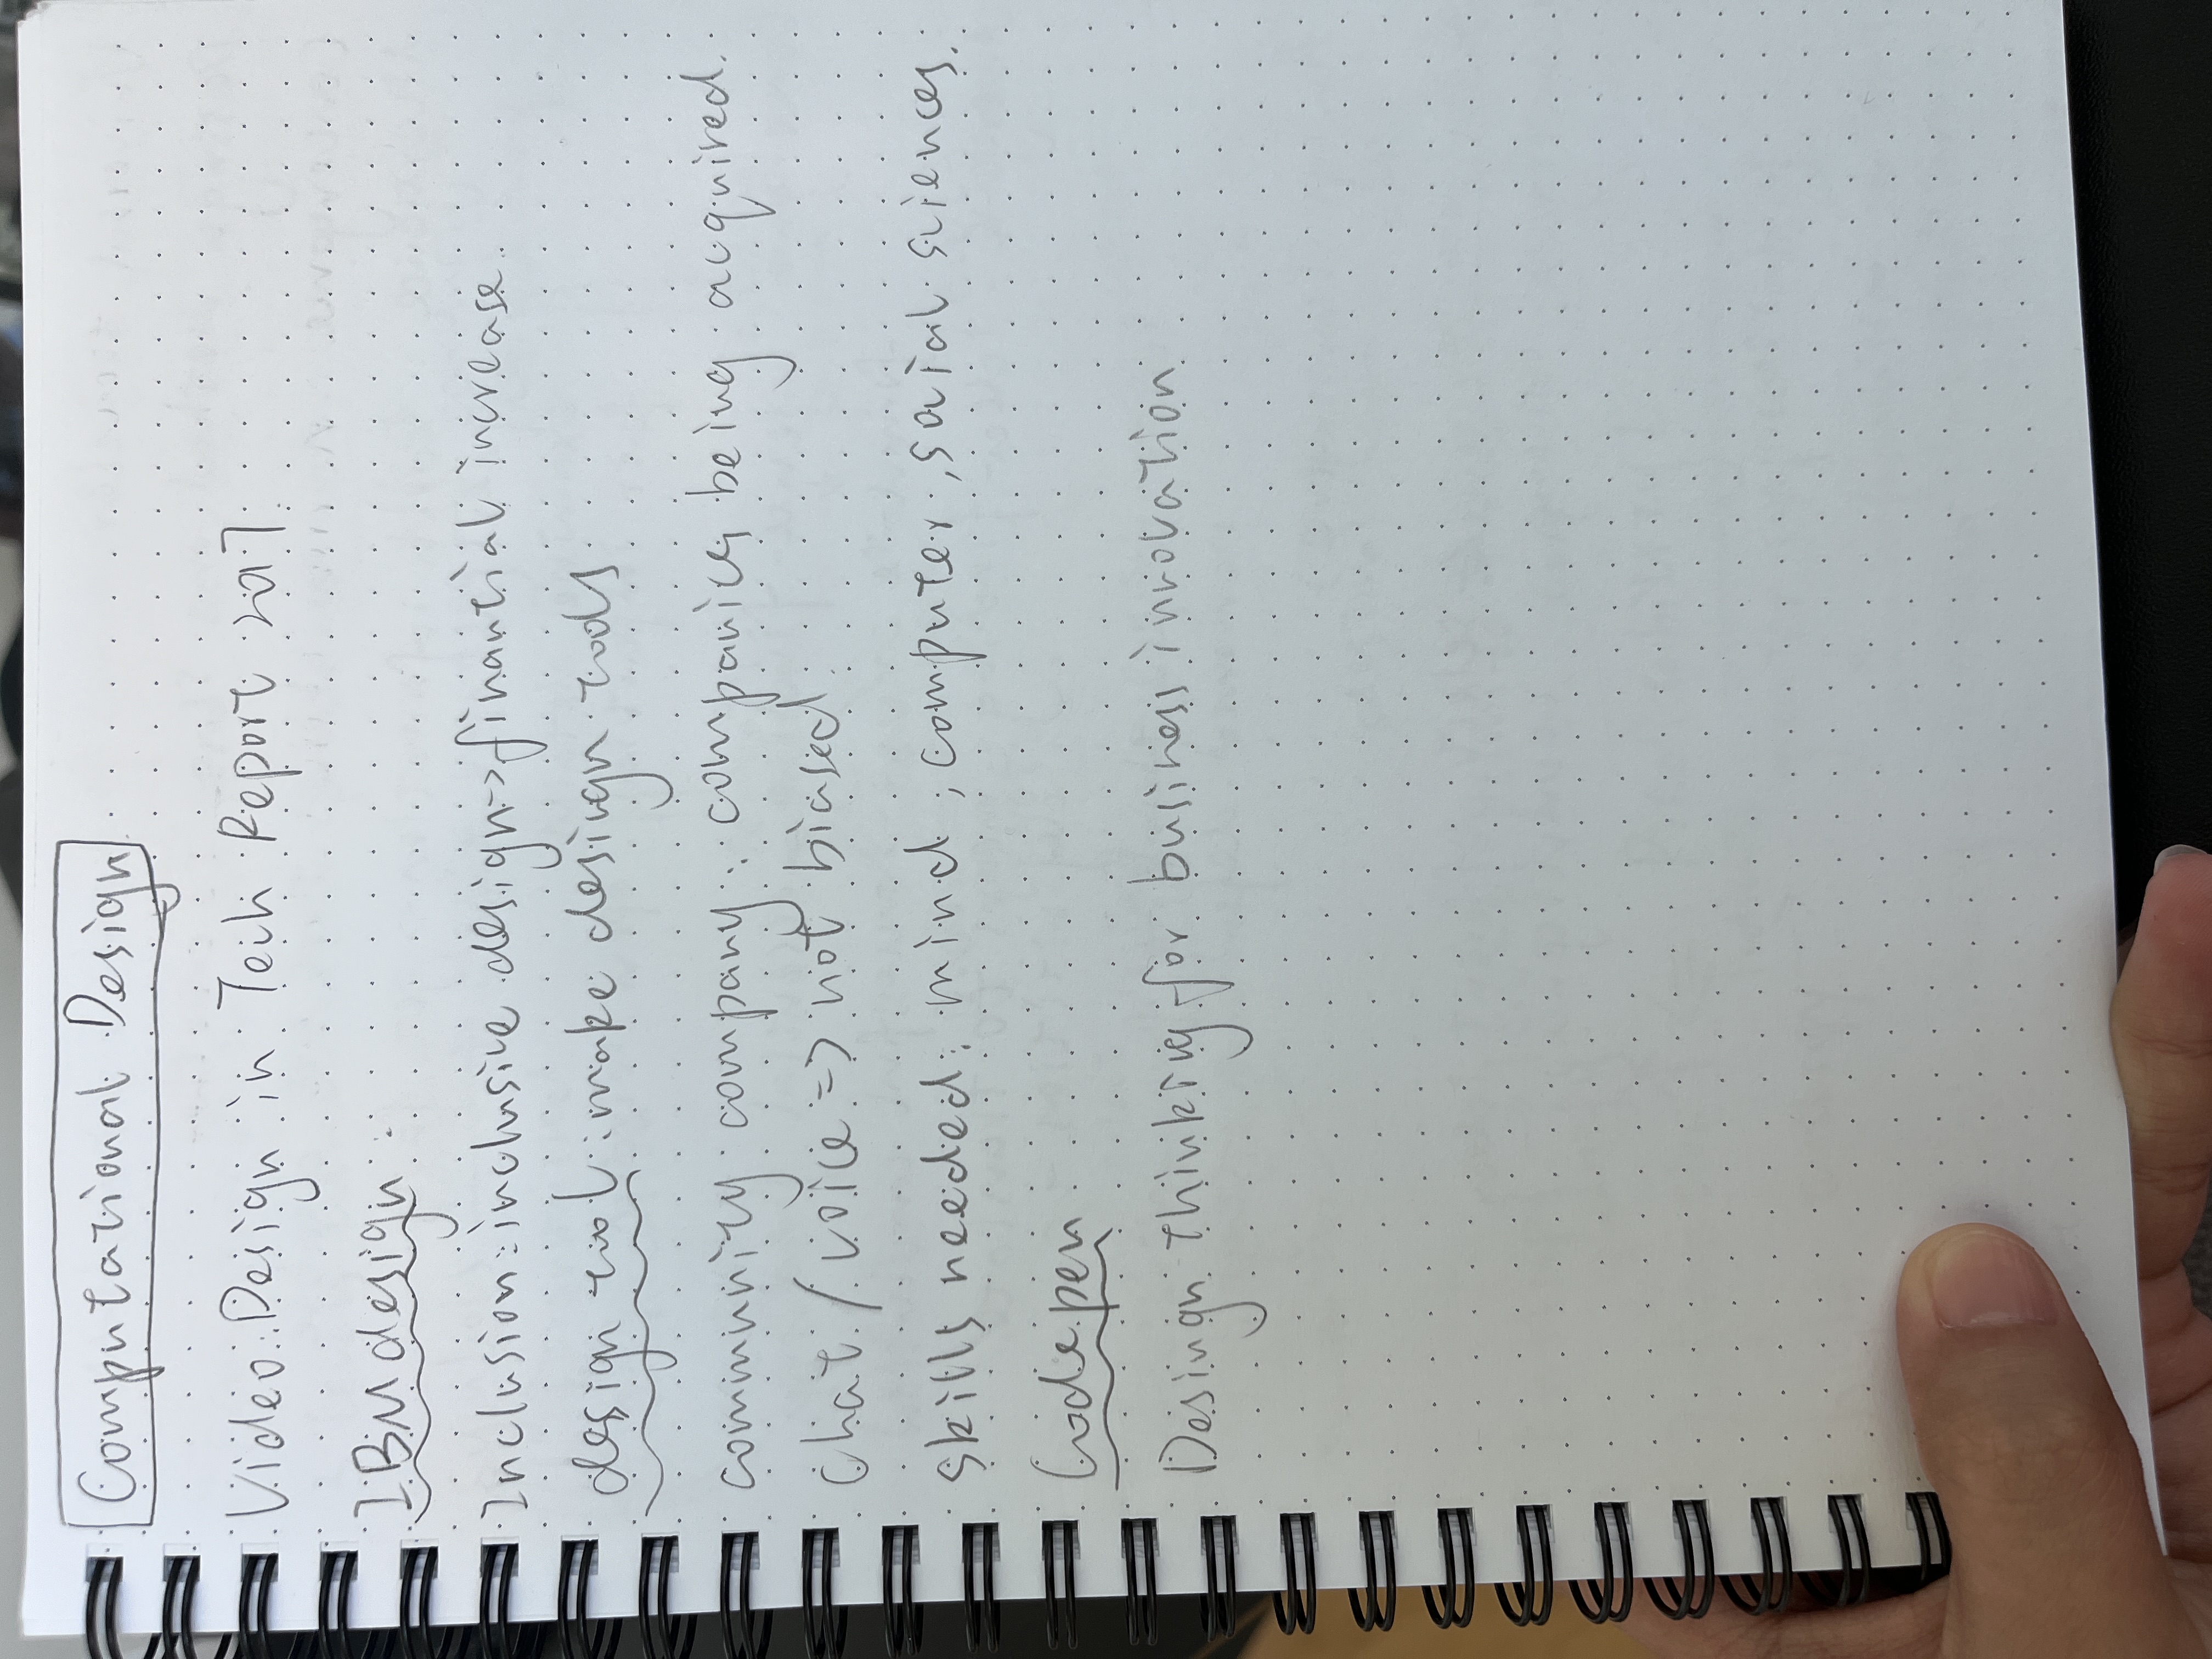 Computational Design
Video: Design in Tech Report 2017
IBM design:
Inclusion: inclusive design -> finantial increase
design tool: make desingn tools
community company: companies being acquired.
Chat / voice => not biased
skills needed: mind, computer, social sciences.
Codepen
Desingn thinking for business innovation